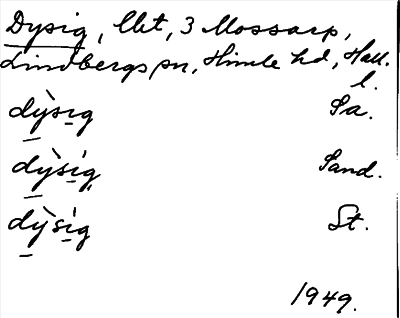 Dysig, lht, 3 Mossarp,
Lindbergs sn, Himle hd, Hall.
l.
dỳsíg Sa.
dỳsíg Sand.
dỳsíg St.
1949.